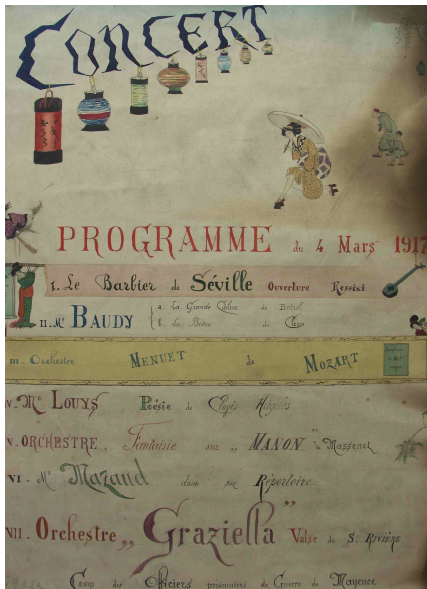 CONCERT
PROGRAMME du 4 Mars 1917
I. Le Barbier de Séville Ouverture Rossini
II. Mr BAUDY { a. La Grande de
b. La du
III. Orchestre MENUET de MOZART
V. Mr LOUYS Poésie de
V. ORCHESTRE „ Fantaisie sur „ MANON " de Massenet
VI. Mr Mazaud dans son Répertoire
VII. Orchestre „ Graziella " Valse de St RIVIÈRE
Camp des Officiers prisonniers de Guerre de Mayence